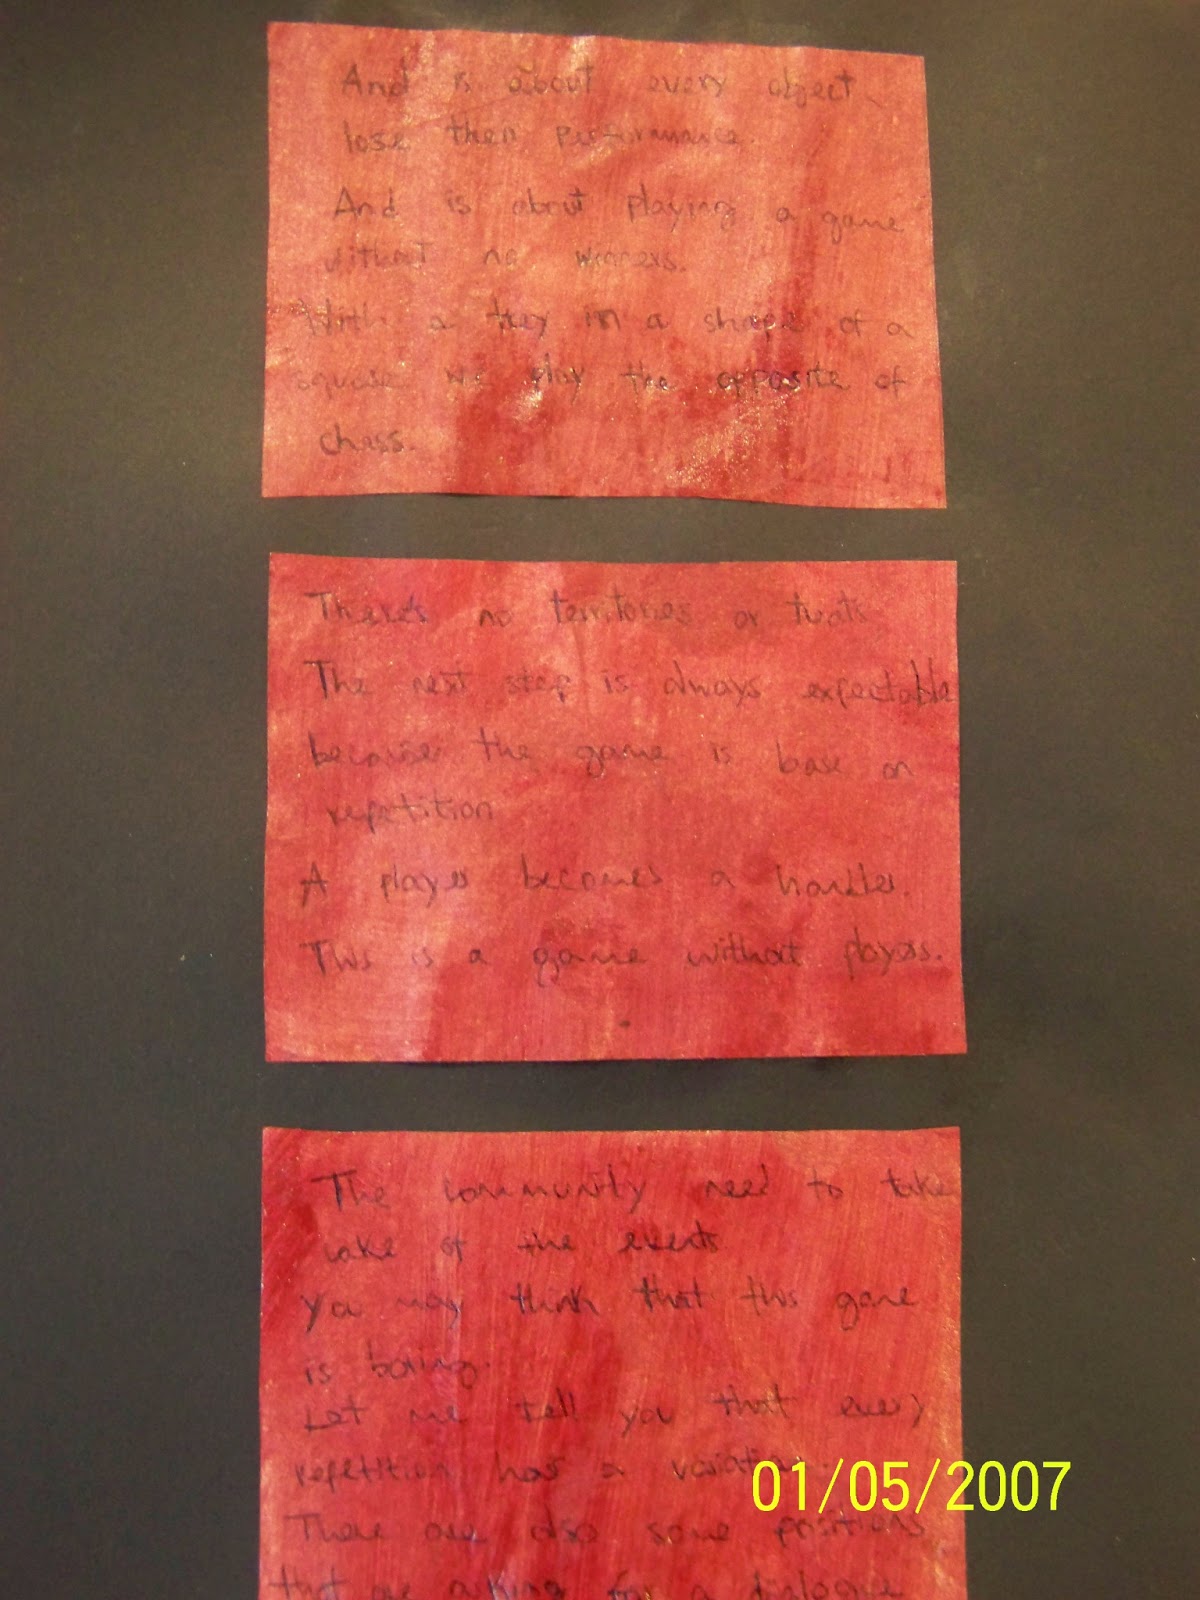 And is about every object
lose then performance.
And is about playing a game
without no winners.
With a tray in a shape of a
square we play the opposite of
chass.
There's no territories or treats
The next step is always expectable
because the game is base on
repetition
A player becomes a handler.
This is a game without players.
The community need to take
cake of the events
You may think that this game
is boring.
Let me tell you that every
repetition has a variation.
There are also some positions
that are asking for a dialogue
01/05/2007